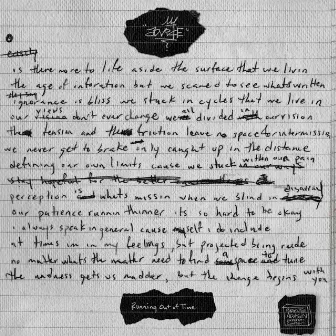 MY
is there more to life aside the surface that we livin
the age of inforation but we scared to see whats written
ignorance is bliss we stuck in cycles that we live in
our views dont ever change we all divided in our vision
tension and friction leave no space for intermissio
we never got to brake only caught up in the distance
defining our own limits cause we stuck within our pain
stay hopeful for the better
perception is whats missin when we blind in disarray
our patience runnin thinner its so hard to be okay
i always speak in general cause myself i do include
at times im in my feelings, but projected being rude
no matter whats the matter need to find a space to tune
the madness gets us madder, but the change begins with you
Running Out of Time
PARENTAL
ADVISORY